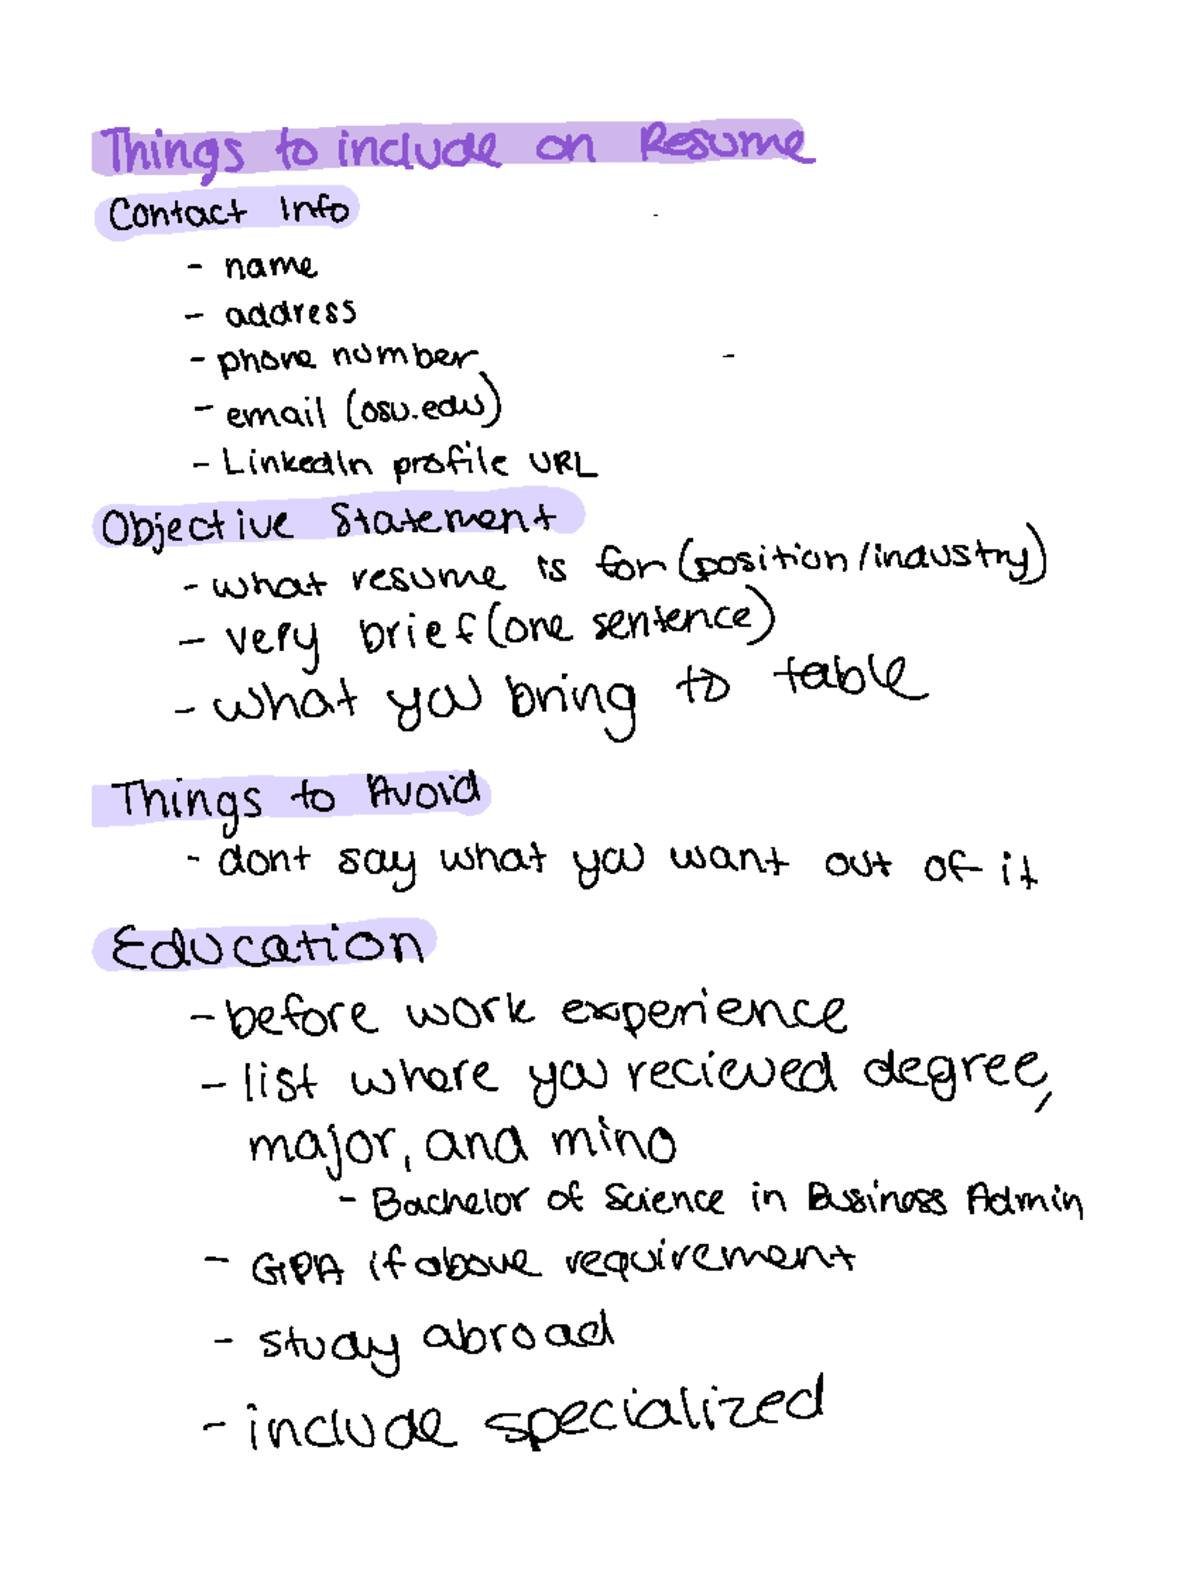 Things to include on Resume
Contact Info
- name
- address
- phone number
- email (osu.edu)
- LinkedIn profile URL
Objective Statement
- what resume is for (position/industry)
- very brief (one sentence)
- what you bring to table
Things to Avoid
- dont say what you want out of it
Education
- before work experience
- list where you recieved degree,
major, and mino
- Bachelor of Science in Business Admin
- GPA if above requirement
- study abroad
- include specialized